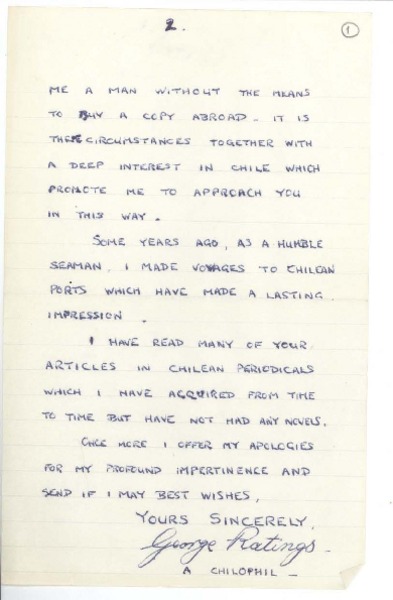 2.
1
ME A MAN WITHOUT THE MEANS
TO BUY A COPY ABROAD - IT IS
THESE CIRCUMSTANCES TOGETHER WITH
A DEEP INTEREST IN CHILE WHICH
PROMOTE ME TO APPROACH YOU
IN THIS WAY.
SOME YEARS AGO, AS A HUMBLE
SEAMAN, I MADE VOYAGES TO CHILEAN
PORTS WHICH HAVE MADE A LASTING
IMPRESSION.
I HAVE READ MANY OF YOUR
ARTICLES IN CHILEAN PERIODICALS
WHICH I HAVE ACQUIRED FROM TIME
TO TIME BUT HAVE NOT HAD ANY NOVELS.
ONCE MORE I OFFER MY APOLOGIES
FOR MY PROFOUND IMPERTINENCE AND
SEND IF I MAY BEST WISHES,
YOURS SINCERELY,
George Ratings -
A CHILOPHIL -